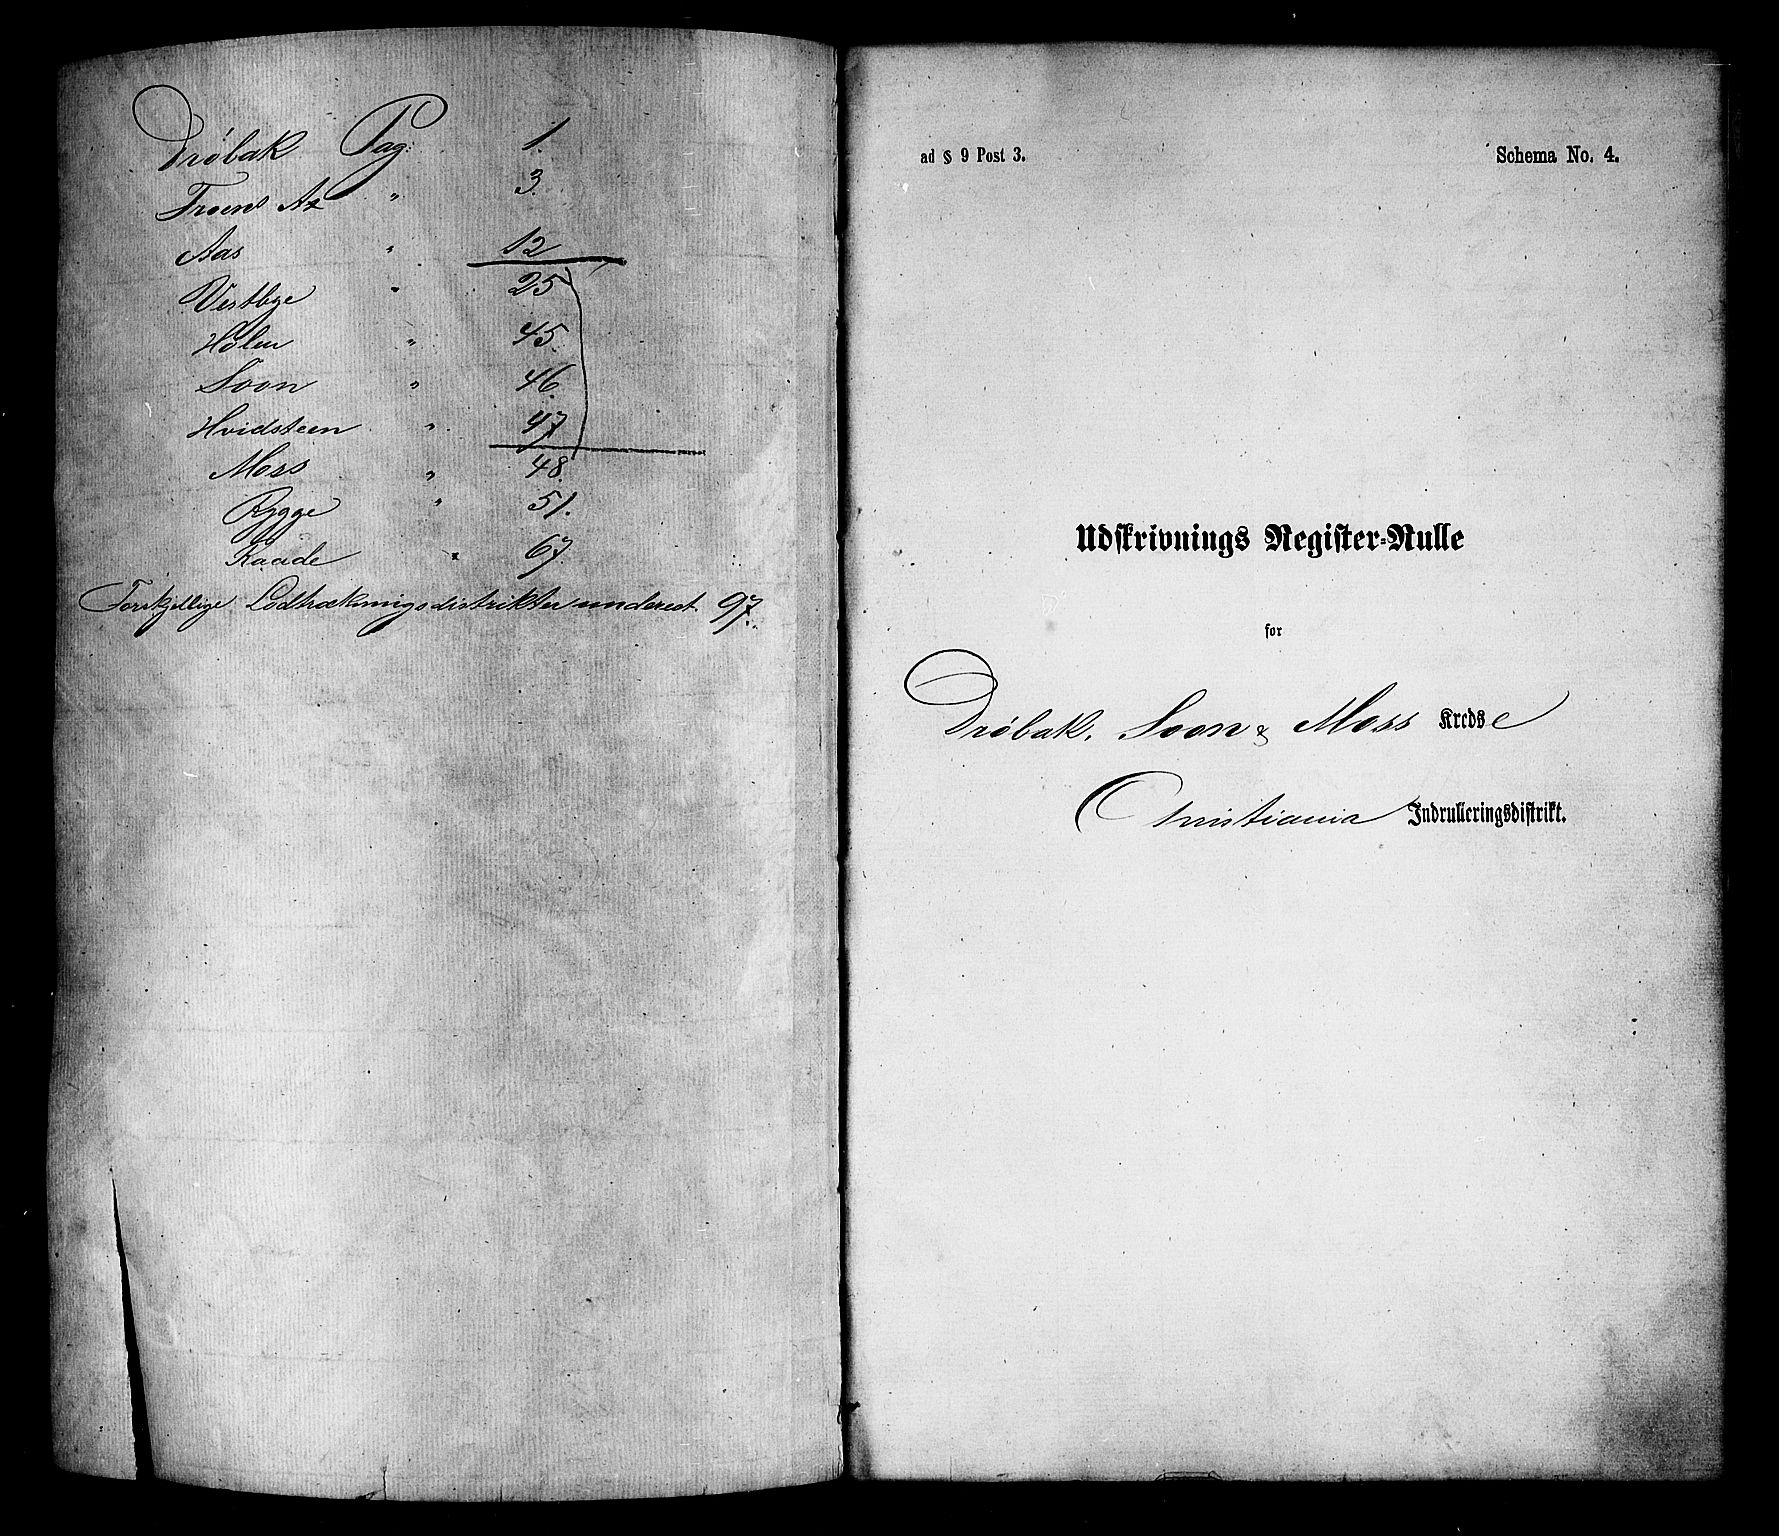 Drøbak Pag: 1.
Froens A " 3.
Aas " 12
Vestbye " 25
Hølen " 45.
Soon " 46.
Hvidsteen " 47
Moss " 48.
Rygge " 51.
Raade " 67.
Forskjellige Lodtrækningsdistrikter underest. 97.
ad § 9 Post 3.
Schema No. 4.
Udskrivnings Register-Rulle
for
Drøbak, Soon & Moss Kredse
Christiania Indrulleringsdistrikt.